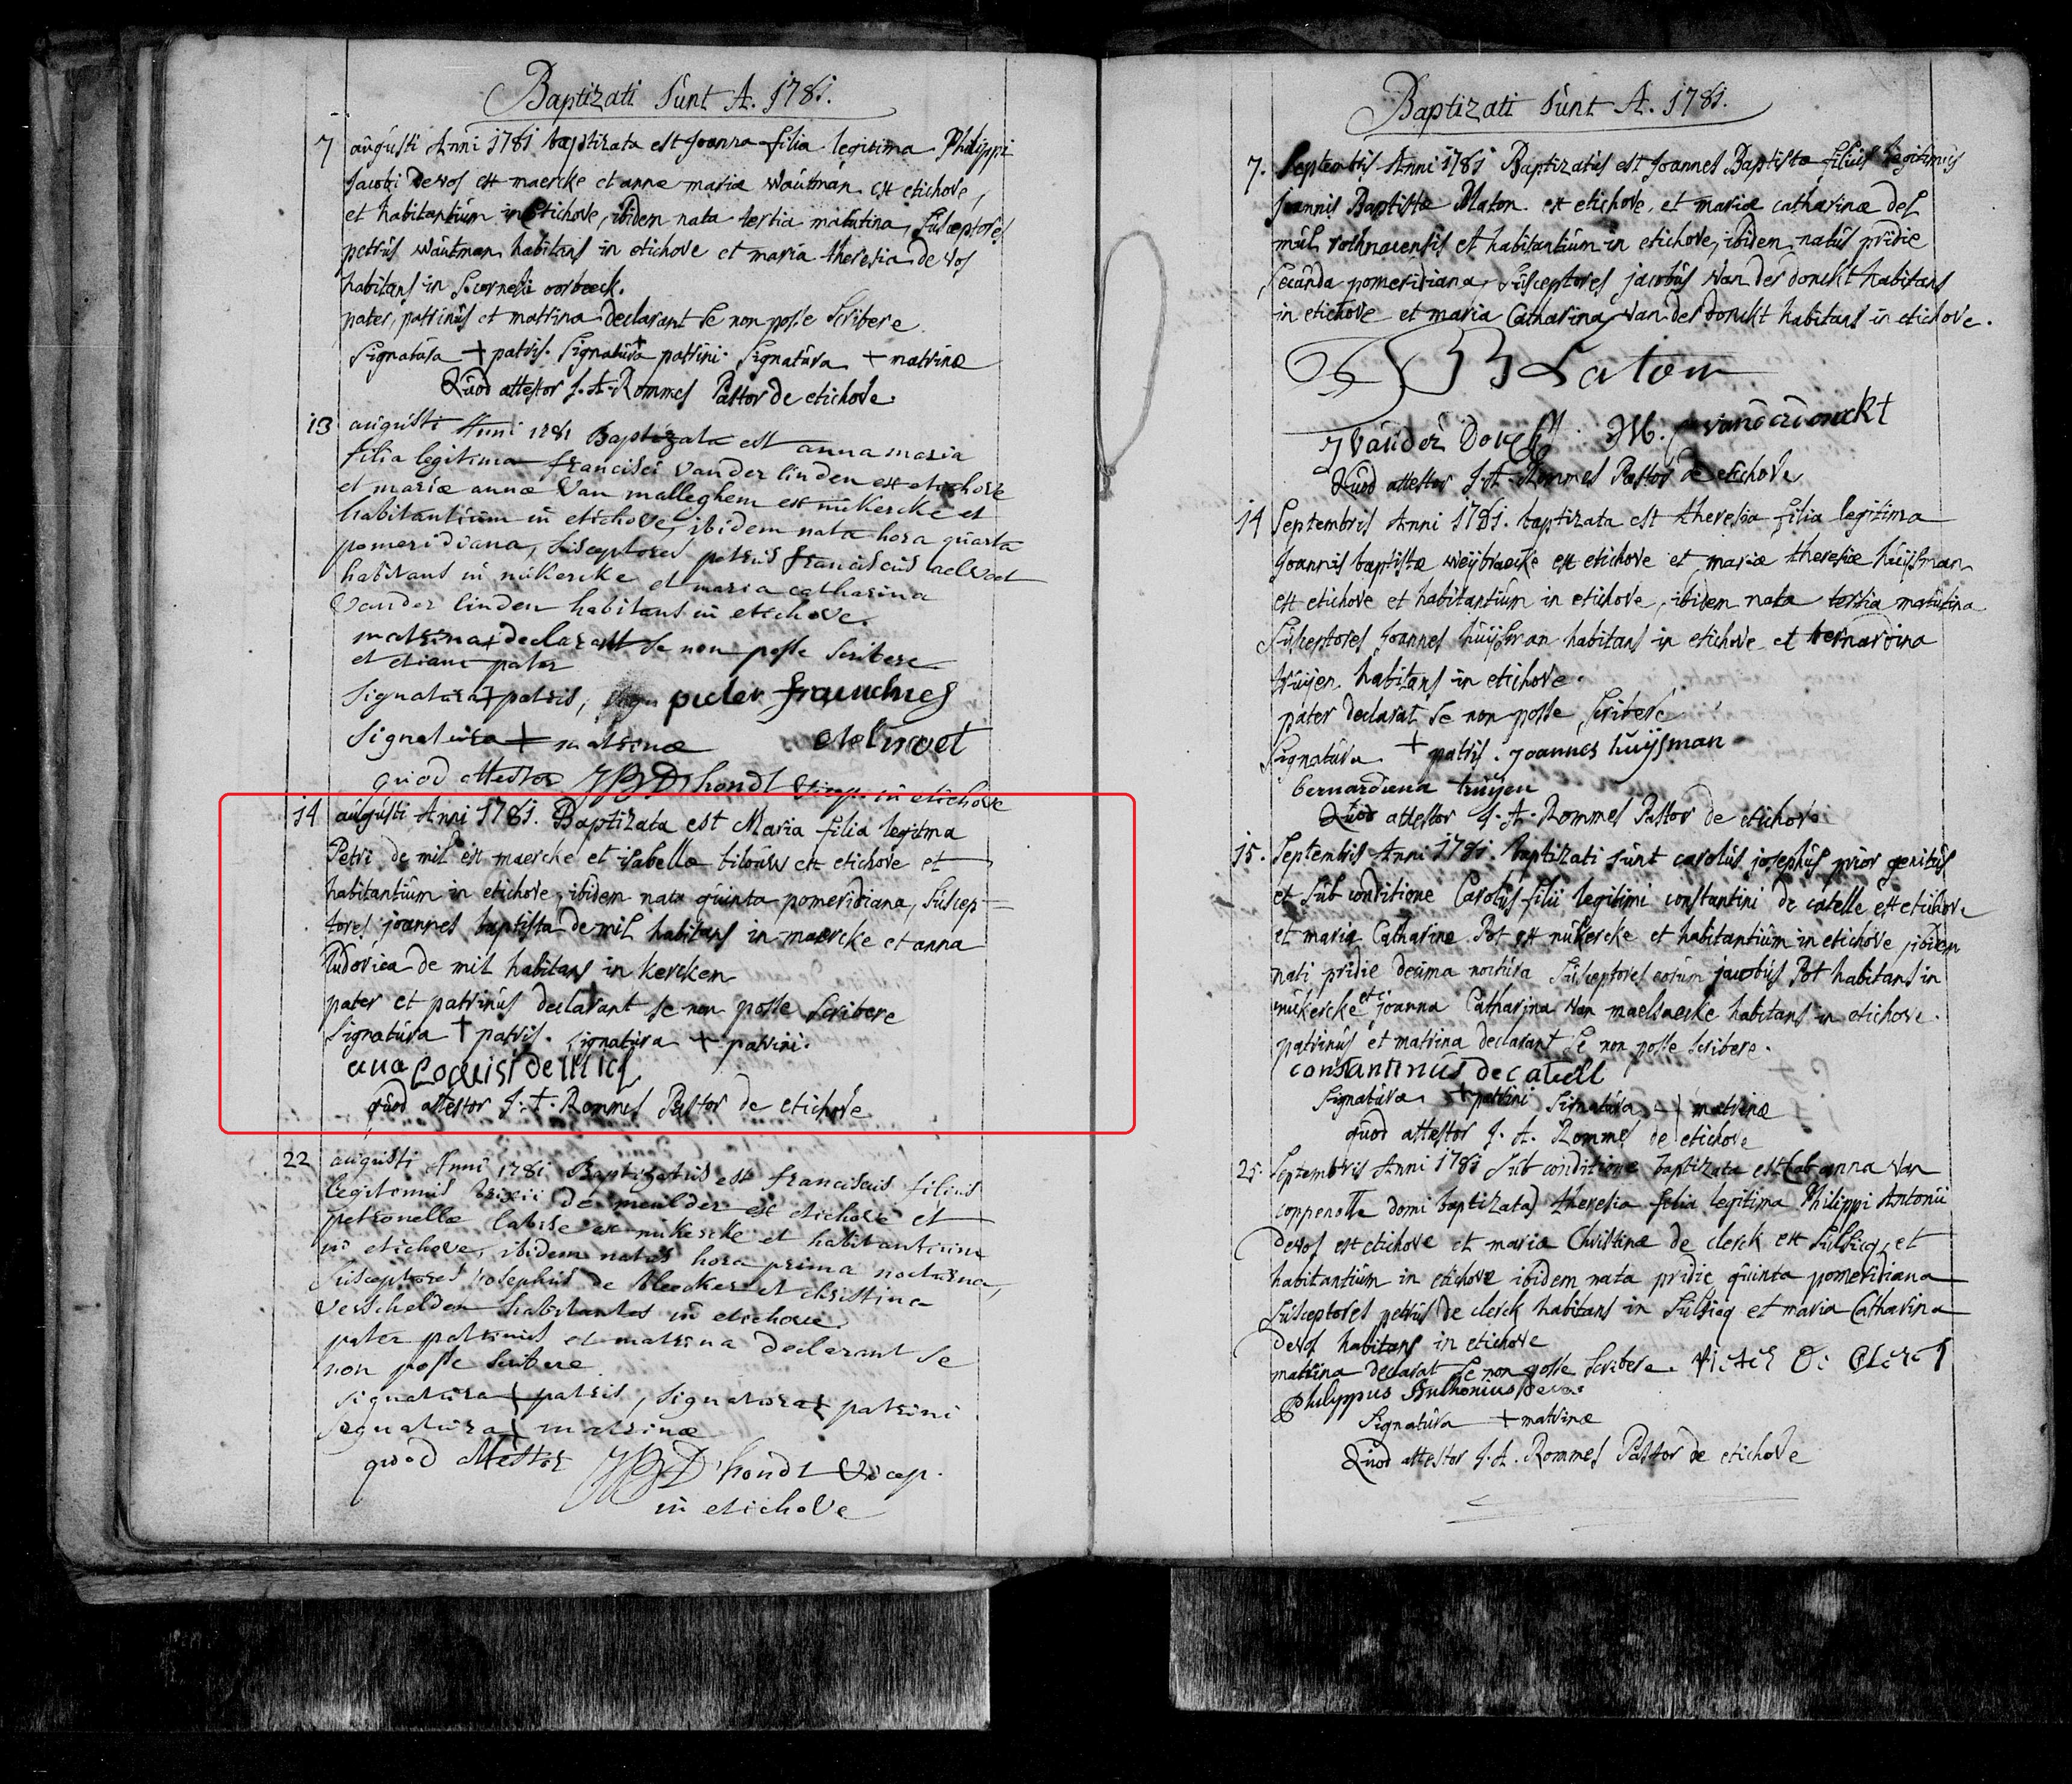 Baptizati sunt A. 1781.
7 augusti Anni 1781 baptizata est Joanna filia legitima Philippi
Jacobi de vos ex maercke et annæ mariæ wautman ex etichove,
et habitantium in Etichove, ibidem nata tertia matutina, susceptores
petrus wautman habitans in etichove et maria theresia de vos
habitans in S. cornelii oorbeeck.
pater, patrinus et matrina declarant se non posse scribere
Signatura + patris. Signatura + patrini. Signatura + matrinæ
Quod attestor J. A. Rommel Pastor de etichove.
13 augusti Anni 1781 Baptizata est anna maria
filia legitima francisci vander linden ex etichove
et mariæ annæ Van malleghem ex nukercke et
habitantium in etichove, ibidem nata hora quarta
pomeridiana, susceptores petrus franciscus aelvoet
habitans in nukercke et maria catharina
Vander linden habitans in etichove.
matrina declarat se non posse scribere
et etiam pater
Signatura + patris, pieter franchies
Signatura + matrinæ aelvoet
quod attestor JB D'hondt Vicep. in etichove
14 augusti Anni 1781. Baptizata est Maria filia legitma
Petri de mil ex maercke et isabellæ bilouw ex etichove et
habitantium in etichove, ibidem nata quinta pomeridiana, suscep=
tores joannes baptista de mil habitans in maercke et anna
Ludovica de mil habitans in kercken
pater et patrinus declarant se non posse scribere
Signatura + patris. signatura + patrini.
ana
quod attestor J. A. Rommel Pastor de etichove
22 augusti Anni 1781 Baptizatus est franciscus filius
legitimus de meulder ex etichove et
petronellæ ex nukercke et habitantium
in etichove, ibidem natus hora prima nocturna,
susceptores Josephus de bleecker et christina
verschelden habitantes in etichove.
pater patrinus et matrina declarant se
non posse scribere
signatura + patris, signatura + patrini
signatura + matrinæ
quod attestor JB D'hondt Vicep.
in etichove
Baptizati sunt A. 1781.
7. Septembris Anni 1781 Baptizatus est Joannes Baptista filius legitimus
Joannis Baptistæ Maton ex etichove, et mariæ catharinæ del
mul rothnacensis et habitantium in etichove, ibidem natus pridie
secunda pomeridiana, susceptores jacobus van der donckt habitans
in etichove et maria Catharina van der donckt habitans in etichove.
Maton
J vander Donckt M. vanderdonckt
Quod attestor J. A. Rommel Pastor de etichove
14 Septembris Anni 1781. baptizata est theresia filia legitima
Joannis baptistæ weijbraecke ex etichove et mariæ theresiæ huijsman
ex etichove et habitantium in etichove, ibidem nata tertia matutina
Susceptores Joannes huijsman habitans in etichove et bernardina
truijen habitans in etichove.
pater declarat se non posse scribere
Signatura + patris. joannes huijsman
bernardiena truijen
Quod attestor J. A. Rommel Pastor de etichove
15. Septembris Anni 1781. baptizati sunt carolus josephus prior genitus
et sub conditione Carolus filii legitimi constantini de catelle ex etichove
et maria Catharine Pot ex nukercke et habitantium in etichove, ibidem
nati pridie decima noctura susceptores eorum jacobus Pot habitans in
nukercke et joanna Catharina van maelsaecke habitans in etichove.
patrinus et matrina declarant se non posse scribere.
constantinus de catell
Signatura + patrini signatura + matrinæ
quod attestor J. A. Rommel de etichove
25. Septembris Anni 1781 sub conditione baptizata est (ab anna van
coppenolle domi baptizata) theresia filia legitima Philippi Antonii
devos ex etichove et mariæ Christinæ de clerck ex sulsicq, et
habitantium in etichove ibidem nata pridie quinta pomeridiana
susceptores petrus de clerck habitans in sulsicq et maria Catharina
devos habitans in etichove
matrina declarat se non posse scribere. Pieter De Clerct
Philippus Anthonius Devos
Signatura + matrinæ
Quod attestor J. A. Rommel Pastor de etichove